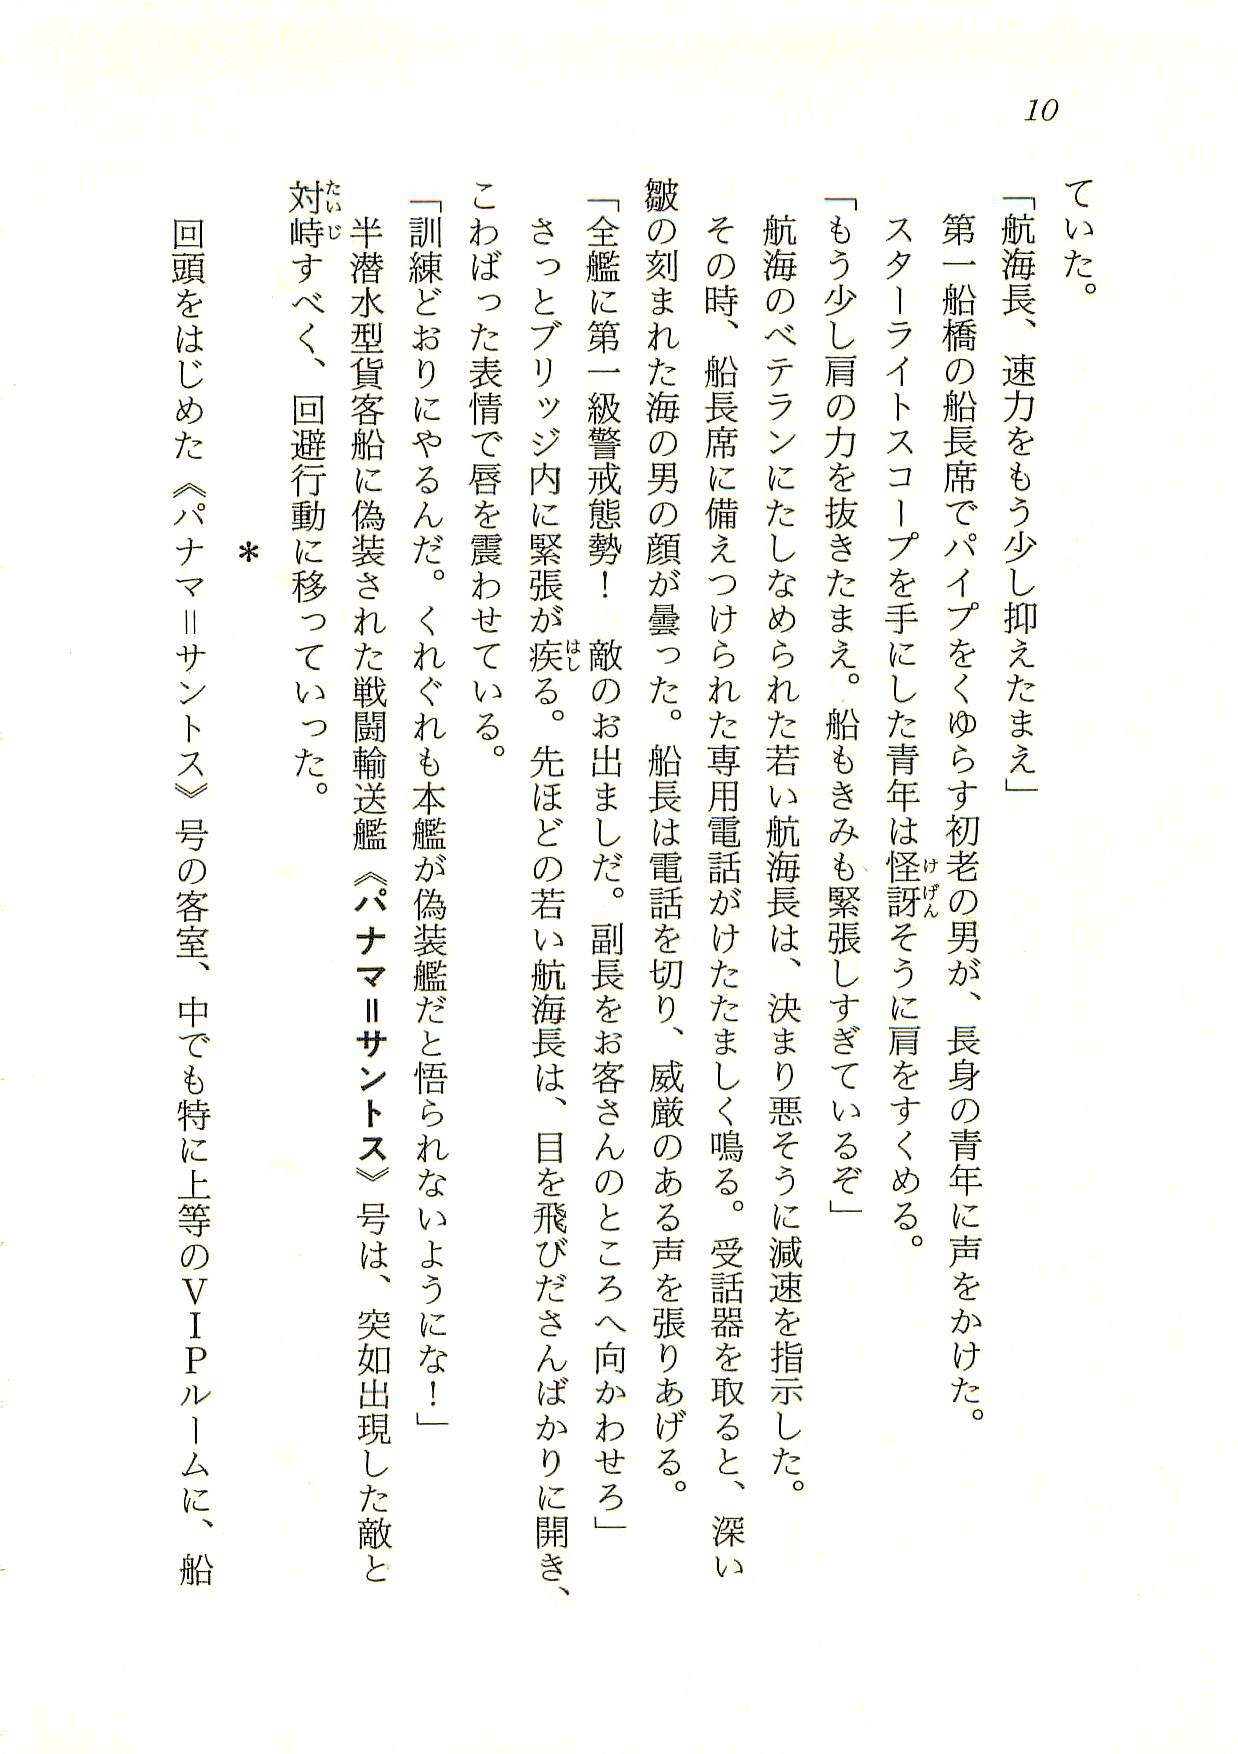 10
ていた。
「航海長、速力をもう少し抑えたまえ」
第一船橋の船長席でパイプをくゆらす初老の男が、長身の青年に声をかけた。
スターライトスコープを手にした青年は怪訝そうに肩をすくめる。
「もう少し肩の力を抜きたまえ。船もきみも緊張しすぎているぞ」
航海のベテランにたしなめられた若い航海長は、決まり悪そうに減速を指示した。
その時、船長席に備えつけられた専用電話がけたたましく鳴る。受話器を取ると、深い
皺の刻まれた海の男の顔が曇った。船長は電話を切り、威厳のある声を張りあげる。
「全艦に第一級警戒態勢！　敵のお出ましだ。副長をお客さんのところへ向かわせろ」
さっとブリッジ内に緊張が疾る。先ほどの若い航海長は、目を飛びださんばかりに開き、
こわばった表情で唇を震わせている。
「訓練どおりにやるんだ。くれぐれも本艦が偽装艦だと悟られないようにな！」
半潜水型貨客船に偽装された戦闘輸送艦《パナマ＝サントス》号は、突如出現した敵と
対峙すべく、回避行動に移っていった。
＊
回頭をはじめた《パナマ＝サントス》号の客室、中でも特に上等のＶＩＰルームに、船